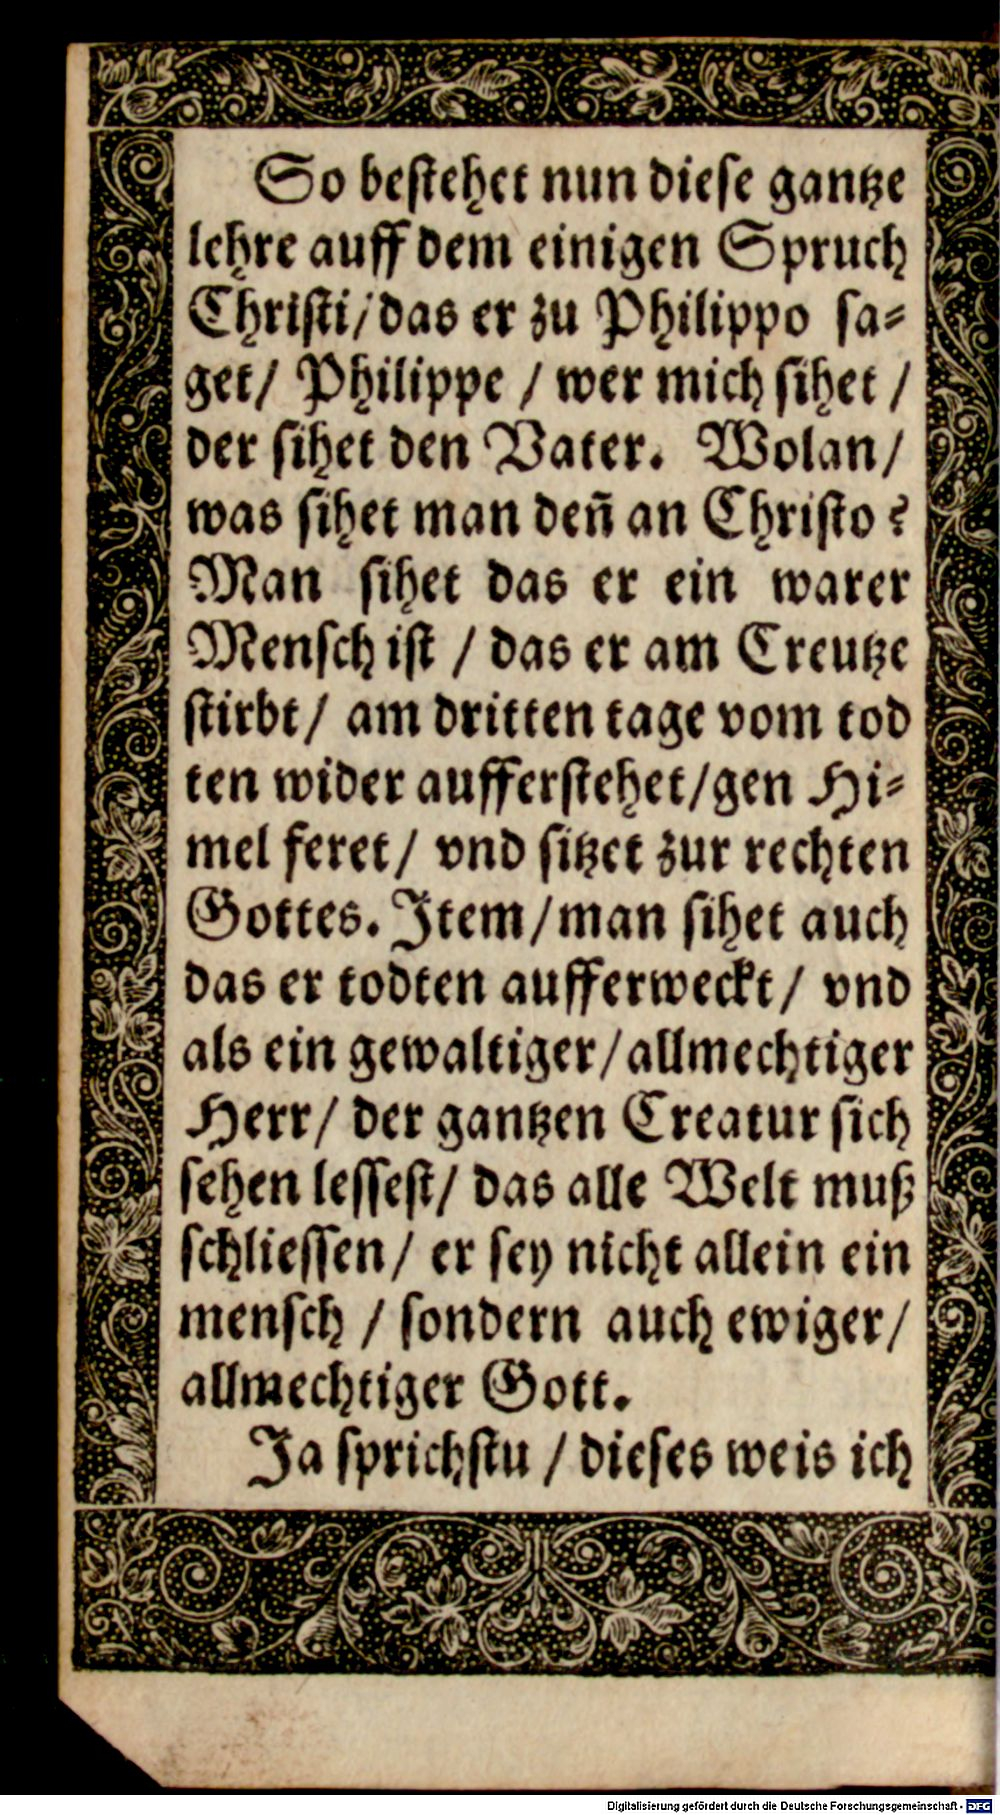 So bestehet nun diese gantze
lehre auff dem einigen Spruch
Christi/das er zu Philippo sa⸗
get/ Philippe / wer mich sihet /
der sihet den Vater. Wolan/
was sihet man deñ an Christo?
Man sihet das er ein warer
Mensch ist / das er am Creutze
stirbt/ am dritten tage vom tod
ten wider aufferstehet/gen Hi⸗
mel feret/ vnd sitzet zur rechten
Gottes. Item/man sihet auch
das er todten aufferweckt/ vnd
als ein gewaltiger/allmechtiger
Herr/ der gantzen Creatur sich
sehen lessest/ das alle Welt muß
schliessen/ er sey nicht allein ein
mensch / sondern auch ewiger/
allmechtiger Gott.
Ja sprichstu / dieses weis ich
Digitalisierung gefördert durch die Deutsche Forschungsgemeinschaft - DFG